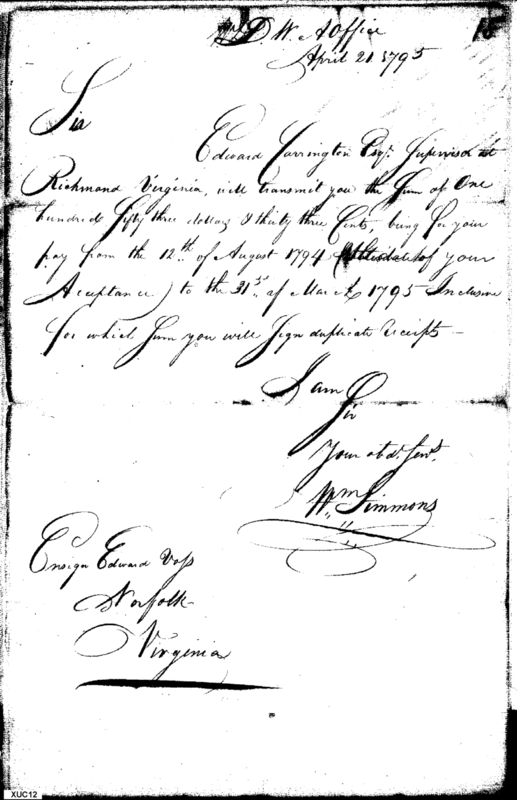 D. W. A Office
15
April 21 1795
Sir
Edward Carrington Esqr. Supervisor at
Richmond Virginia, will transmit you the Sum of One
hundred fifty three dollars & thirty three Cents, being for your
pay from the 12th. of August 1794 (the date of your
Acceptance) to the 31st. of March 1795 Inclusive
for which Sum you will Sign duplicate receipts —
I am
Sir
Your obdt. Servt.
Wm Simmons
Ensign Edward Voss
Norfolk
Virginia
XUC12